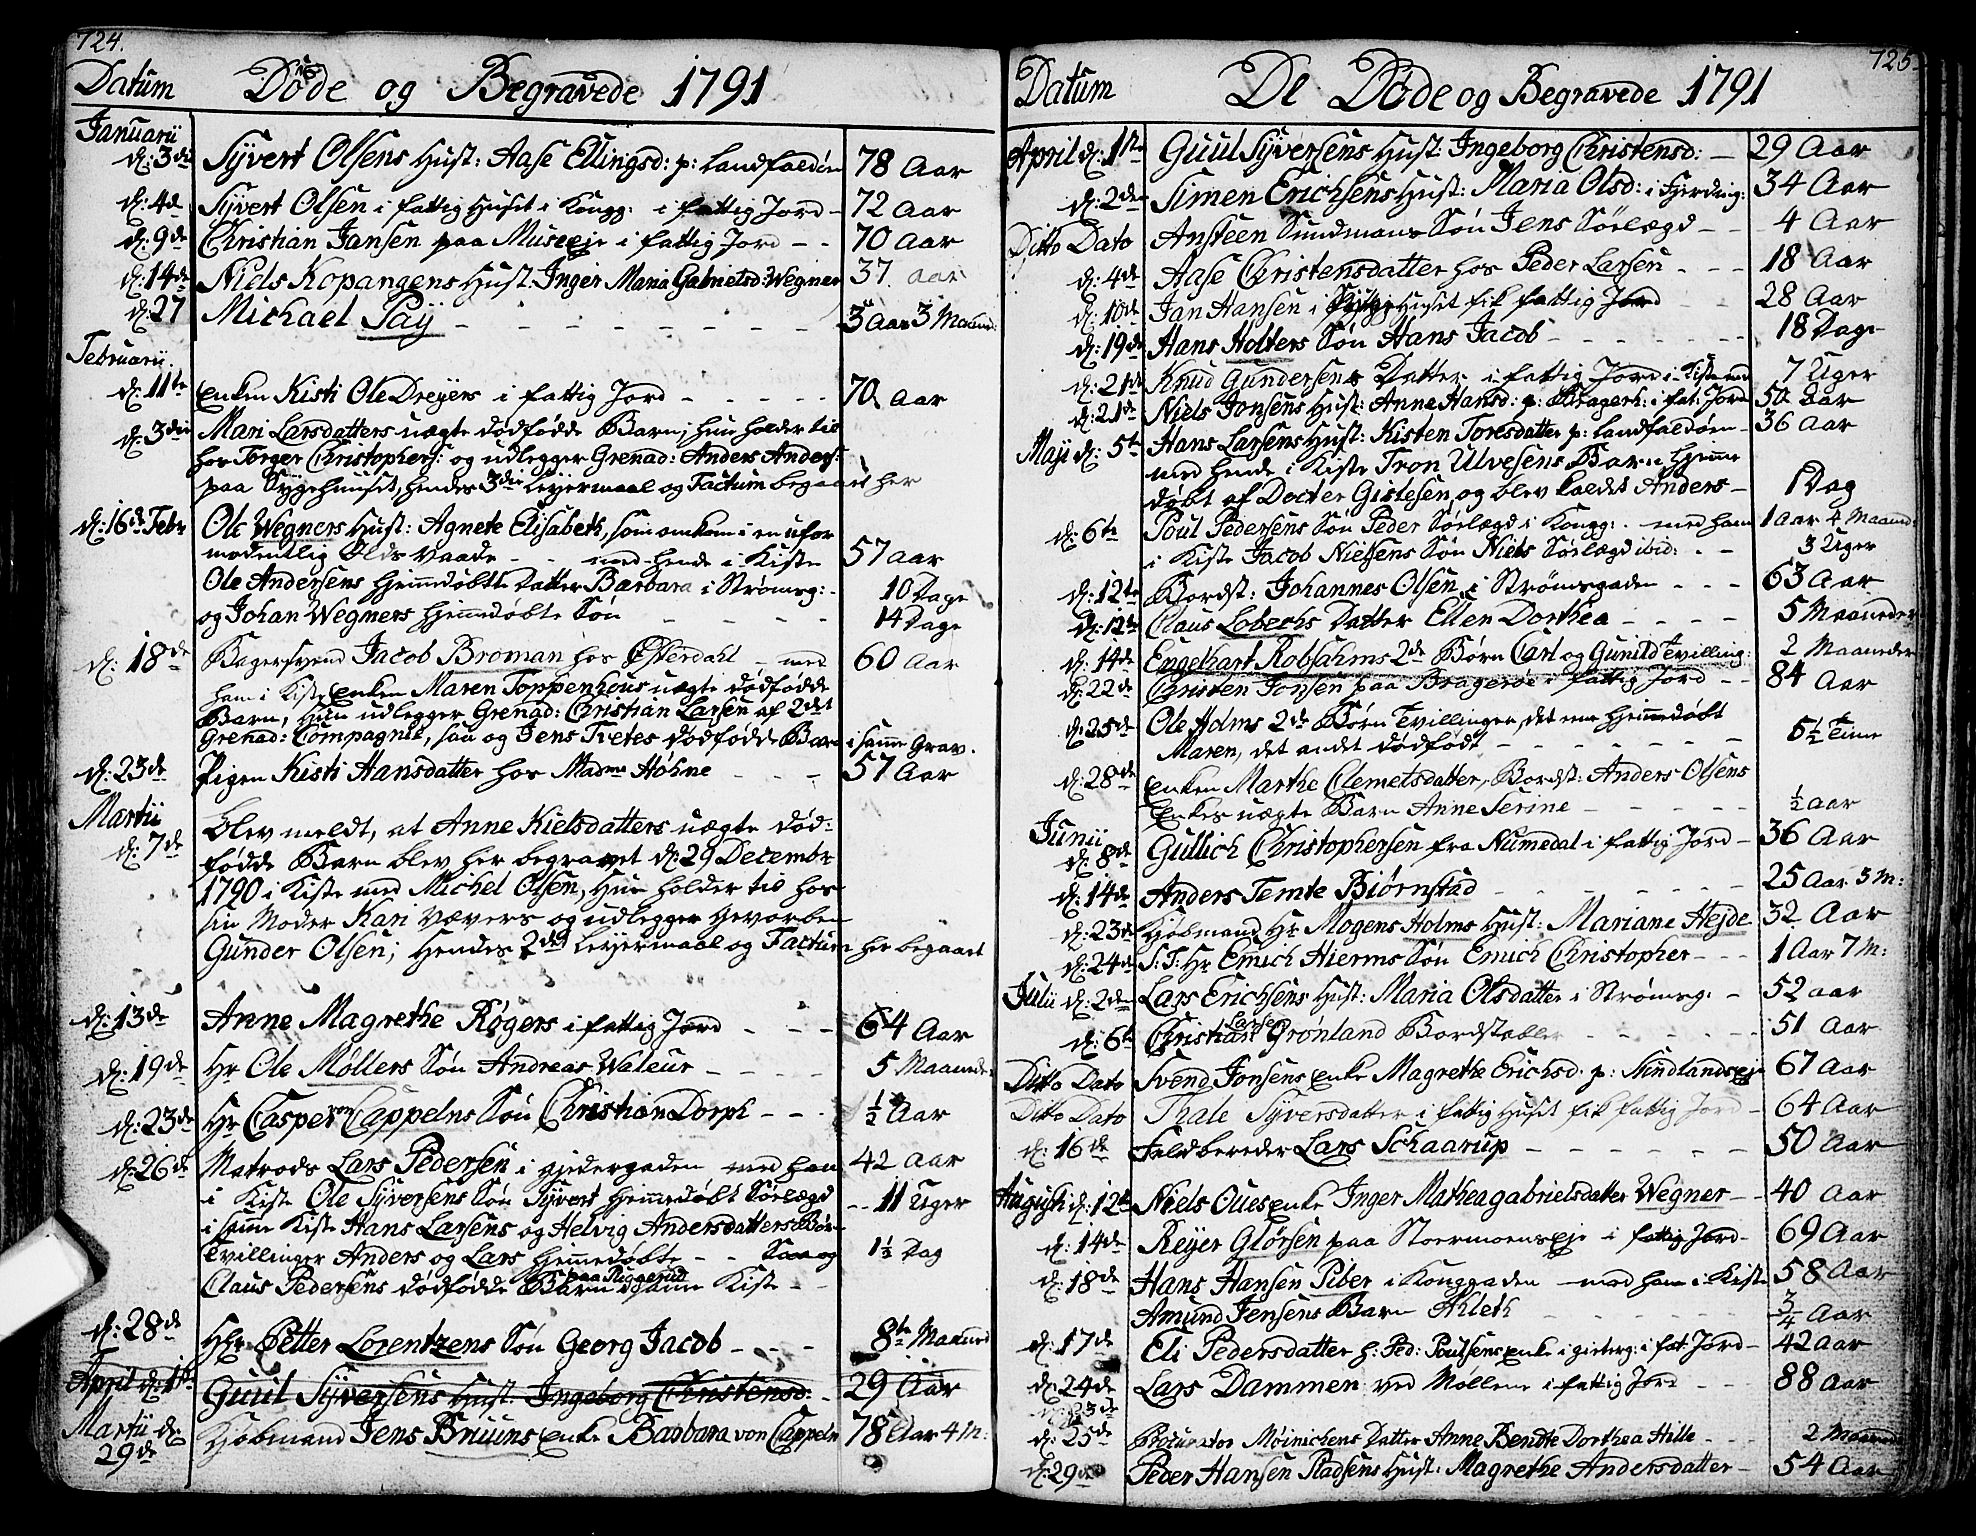 724.
Datum Døde og Begravede 1791
Januarii
d: 3die Syvert Olsens Hust: Aase Ellingsd: p: Landfaldøen 78 Aar
d: 4de Syvert Olsen i fattig Huset i Kongg: i fattig Jord - 72 Aar
d: 9de Christian Jansen paa Museeje i fattig Jord - - 70 Aar
d: 14de Niels Kopangens Hust: Inger Maria Gabrielsd: Wegner 37 aar
d: 27 Michael Pay - - - - - - - 3 Aar 3 Maaned:
Februarii
d: 11te Enken Kisti Ole Dreyers i fattig Jord - - - - - 70 Aar
d: 3die Mari Larsdatters uægte dødfødde Barn; hun holder til
hos Torger Christophers: og udlegger Grenad: Anders Anders:
paa Sygehuuset, hendes 3die Leyermaal og Factum begaaet her
d: 16de Febr Ole Wegners Hust: Agnete Elisabeth, som omkom i en ufor
modentlig Ilds Vaade - - med hende i Kiste 57 Aar
Ole Andersens hjemmedøbte Datter Barbara i Strømsg: - 10 Dage
og Johan Wegners hjemmedøbte Søn - - - - 14 Dage
d: 18de Bagersvend Jacob Broman hos Østerdahl - med 60 Aar
ham i Kiste Enken Maren Toppenhous uægte dødfødde
Barn, hun udlegger Grenad: Christian Larsen af 2det
Grenad: Compagnie, saa og Jens Tvetes dødfødde Barn i samme Grav.
d: 23de Pigen Kisti Hansdatter hos Madme Høhne - - - 57 Aar
Martii
d: 7de Blev meldt, at Anne Kielsdatters uægte død-
fødde Barn blev her begravet d: 29 Decembr
1790 i Kiste med Michel Olsen, hun holder til hos
sin Moder Kari Vævers og udlegger Hevorben
Gunder Olsen; hendes 2det Leyermaal og Factum her begaaet
d: 13de Anne Magrethe Røgers i fattig Jord - - - 64 Aar
d: 19de Hr Ole Møllers Søn Andreas Waleur - - - - 5 Maaneder
d: 23de Hr Casper von Cappelns Søn Christian Dorph - - - ½ Aar
d: 26de Matrods Lars Pedersen i gjedergaden med ham 42 Aar
i Kiste Ole Syversens Søn Syvert hjemmedøbt Sørlægd - - 11 Uger
i samme Kiste Hans Larsens og Helvig Andersdatters Børn
Tvillinger Anders og Lars hjemmedøbte - - Saa og 1½ Dag
Claus Pedersens dødfødde Barn paa Riggerud i samme Kiste - -
d: 28de Hr Petter Lorentzens Søn Georg Jacob - - - - 8te Maaned
April d: 1te Guul Syversens Hust: Ingeborg Christensd: - 29 Aar
Martii d:
29de Kjøbmand Jens Bruuns Enke Barbara von Cappeln 78 Aar 4 M:
725.
Datum De Døde og Begravede 1791
April d: 1ste Guul Syversens Hust: Ingeborg Christensd: - 29 Aar
d: 2den Simen Erichsens Hust: Maria Olsd: i Fjerding: 34 Aar
Ditto Dato Ansteen Sundmans Søn Jens Sørlægd - - 4 Aar
d: 4de Aase Christensdatter hos Peder Larsen - - - 18 Aar
d: 10de Jan Hansen i Huset fik fattig Jord - - 28 Aar
d: 19de Hans Holters Søn Hans Jacob - - - - - - - 18 Dage
d: 21de Knud Gundersens Datter i fattig Jord i Kiste med 7 Uger
d: 21de Niels Jonsens Hust: Anne Hansd: p: Bragerh: i fat: Jord 50 Aar
Maji d: 5te Hans Larsens Hust: Kisten Toresdatter p: Landfaldøen - 36 Aar
med hende i Kiste Tron Ulvesens Barn hjemme
døbt af Docter Gislesen og blev kaldet Anders - 1 Dag
d: 6te Poul Pedersens Søn Peder Sørlægd i Kongg: - med ham 1 Aar 4 Maaned:
i Kiste Jacob Nielsens Søn Niels Sørlægd ibid: - - 3 Uger
d: 12te Bordst: Johannes Olsen i Strømsgaden - - - 63 Aar
d: 12te Claus Lobechs Datter Ellen Dorthea - - - - 5 Maaneder
d: 14de Engelhart Robsahms 2de Børn Carl og Gunild Tvilling: 2 Maaneder
d: 22de Christen Jonsen paa Bragerøe i fattig Jord - - 84 Aar
d: 25de Ole Holms 2de Børn Tvillinger, det ene hjemmedøbt
Maren, det andet dødfødt - - - - - - - 5½ Time
d: 28de Enken Marthe Clemetsdatter, Bordst: Anders Olsens
Enkes uægte Barn Anne Serine - - - - - ½ Aar
Junii
d: 8de Gullich Christophersen fra Numedal i fattig Jord - 36 Aar
d: 14de Anders Temte Biørnstad - - - - - - - 25 Aar 3 M:
d: 23de Kjøbmand Hr Mogens Holms Hust: Mariane Hejde 32 Aar
d: 24de S: T: Hr Emich Hierms Søn Emich Christopher - - - 1 Aar 7 M:
Julii d: 2den Lars Erichsens Hust: Maria Olsdatter i Strømsg: - 52 aar
d: 6te Christian Larsen Grønland Bordstabler - - - - 51 Aar
Ditto Dato Svend Jonsens Enke Magrethe Erichsd: p: Sundlandseje 67 Aar
Ditto Dato Thale Syversdatter i fattig Huset fik fattig Jord - 64 Aar
d: 16de Feldbereder Lars Schaarup - - - - - - 50 Aar
Augusti d: 12te Niels Oues Enke Inger Mathea Gabrielsdatter Wegner - - 40 Aar
d: 14de Reyer Glørsen paa Stoermoenseje i fattig Jord - 69 Aar
d: 18de Hans Hansen Piber i Konggaden - med ham i Kiste 58 Aar
Amund Jensens Barn Ahleth - - - - ¾ Aar
d: 17de Eli Pedersdatter h: Ped: Poulsens Enke i gieterg: i fat: Jord - 42 aar
d: 24de Lars Dammen ved Møllene i fattig Jord - - 88 Aar
d: 25de Procurator Møinichens Datter Anne Bendte Dorthea Hille - 2 Maaneder
d: 29de Peder Hansen Stadsens Hust: Magrethe Andersdatter - 54 Aar